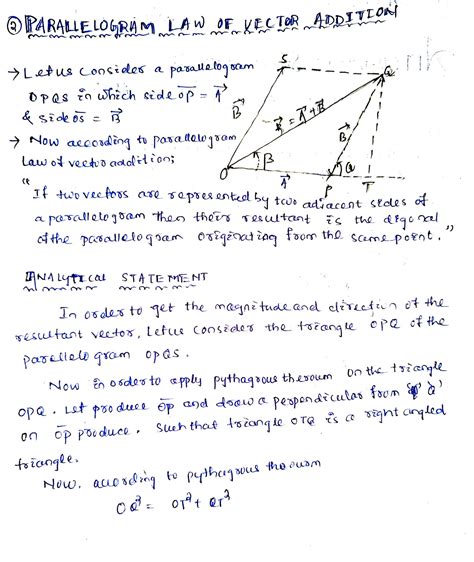 ② PARALLELOGRAM LAW OF VECTOR ADDITION
→ Let us consider a parallelogram
OPQS in which side OP = A
& side OS = B
→ Now according to parallelogram
Law of vector addition;
S
Q
B
R = A + B
B
O
β
A
P
θ
T
"If two vectors are represented by two adjacent sides of
a parallelogram then their resultant is the digonal
of the parallelogram originating from the same point."
ANALYTICAL STATEMENT
In order to get the magnitude and direction of the
resultant vector, Let us consider the triangle OPQ of the
parallelogram OPQS.
Now in order to apply pythagrous theroum on the triangle
OPQ. Let produce OP and draw a perpendicular from 'Q'
on OP produce. Such that triangle OTQ is a right angled
triangle.
Now, according to pythagrous theorum
OQ² = OT² + QT²